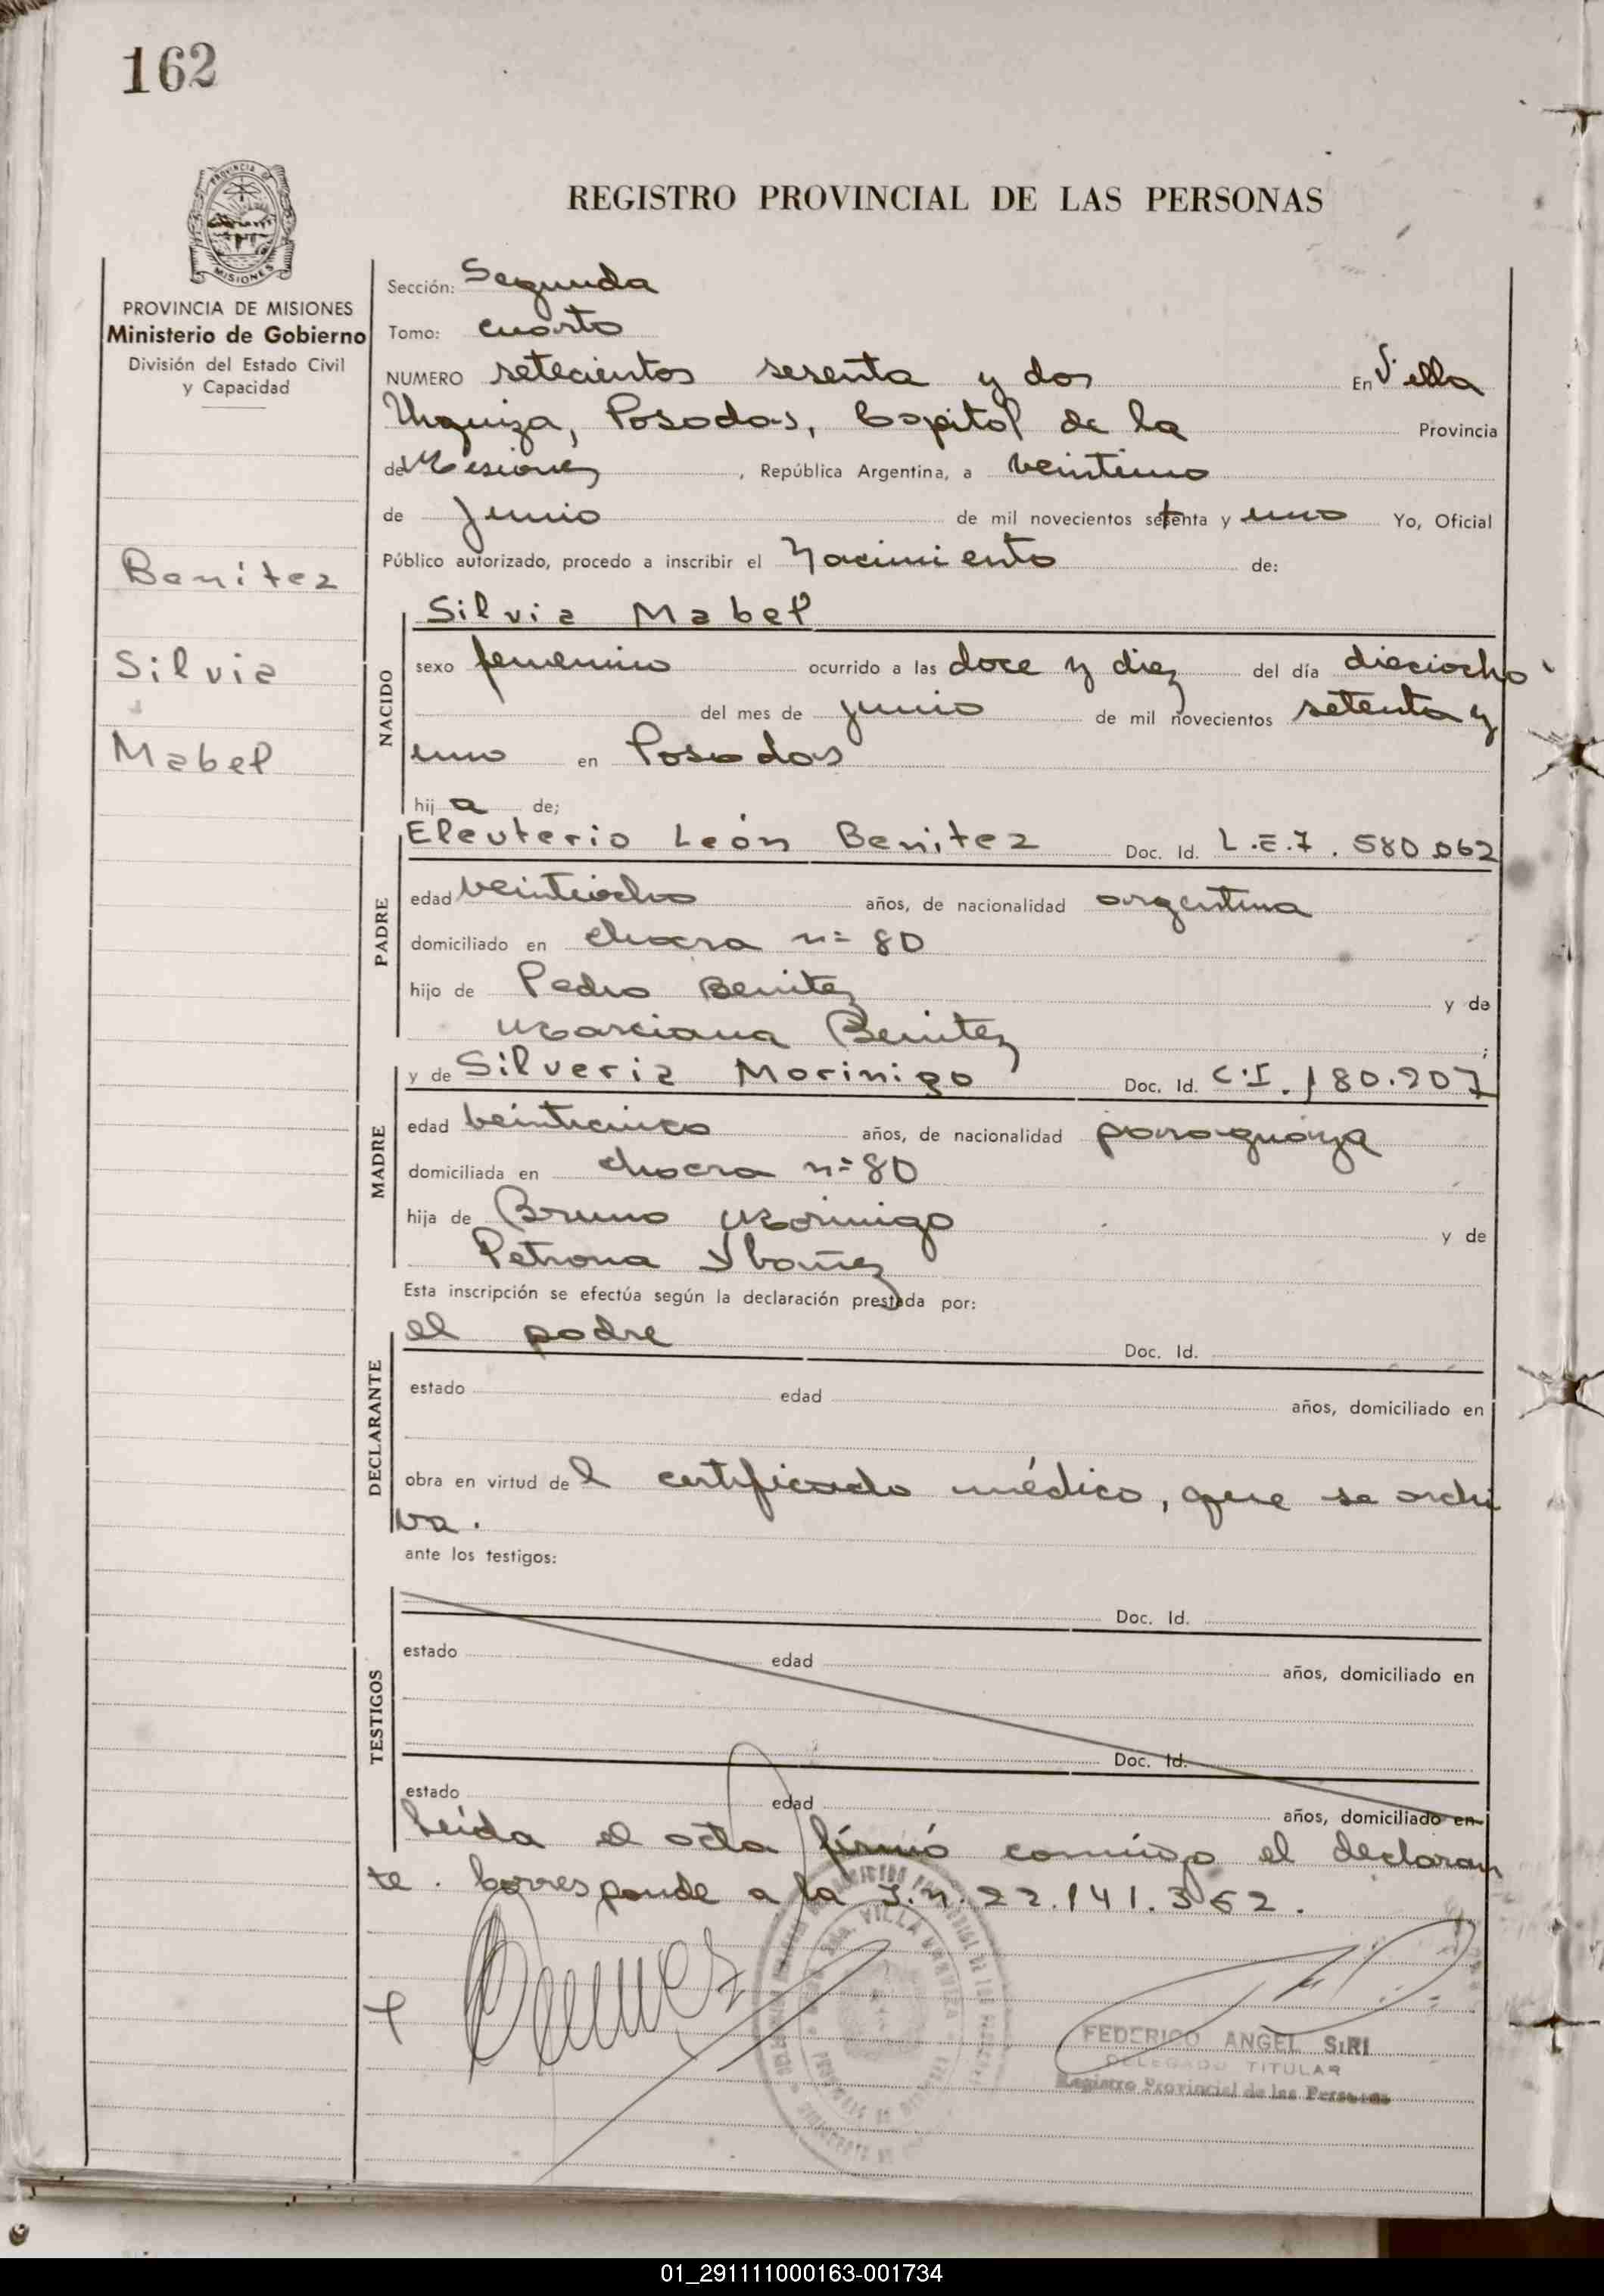 162
PROVINCIA DE
MISIONES
REGISTRO PROVINCIAL DE LAS PERSONAS
PROVINCIA DE MISIONES
Ministerio de Gobierno
División del Estado Civil
y Capacidad
Benitez
Silvia
Mabel
Sección: Segunda
Tomo: cuarto
NUMERO setecientos sesenta y dos En Villa
Urquiza, Posadas, Capital de la Provincia
de Misiones, República Argentina, a veintiuno
de Junio de mil novecientos setenta y uno Yo, Oficial
Público autorizado, procedo a inscribir el Nacimiento de:
Silvia Mabel
NACIDO
sexo femenino ocurrido a las doce y diez del día dieciocho
del mes de junio de mil novecientos setenta y
uno en Posadas
hij a de;
PADRE
Eleuterio León Benitez Doc. Id. L.E.7.580.062
edad veintiocho años, de nacionalidad argentina
domiciliado en chacra n= 80
hijo de Pedro Benitez y de
Marciana Benitez ;
MADRE
y de Silveria Morinigo Doc. Id. C.I. 180.907
edad veinticinco años, de nacionalidad paraguaya
domiciliada en chacra n=80
hija de Bruno Morinigo y de
Petrona Ybañez
Esta inscripción se efectúa según la declaración prestada por:
DECLARANTE
el padre Doc. Id.
estado edad años, domiciliado en
obra en virtud del certificado médico, que se archi
va.
ante los testigos:
TESTIGOS
Doc. Id.
estado edad años, domiciliado en
Doc. Id.
estado edad años, domiciliado en
Leída el acta firmó conmigo el declaran
te. Corresponde a la I.n. 22.141.362.
VILLA URQUIZA
FEDERICO ANGEL SIRI
DELEGADO TITULAR
Registro Provincial de las Personas
01_291111000163-001734